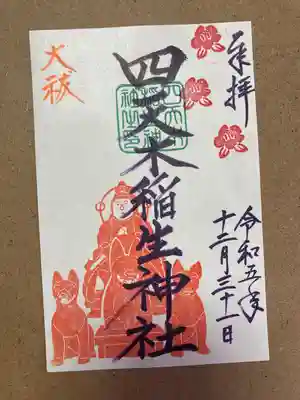 奉拝
四又木稲生神社
大祓
令和五年
十二月三十一日